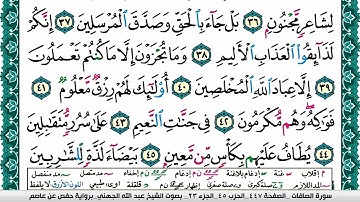 لِشَاعِرٍ مَّجْنُونٍ ٣٦ بَلْ جَآءَ بِٱلْحَقِّ وَصَدَّقَ ٱلْمُرْسَلِينَ ٣٧ إِنَّكُمْ
لَذَآئِقُوا۟ ٱلْعَذَابِ ٱلْأَلِيمِ ٣٨ وَمَا تُجْزَوْنَ إِلَّا مَا كُنتُمْ تَعْمَلُونَ
٣٩ إِلَّا عِبَادَ ٱللَّهِ ٱلْمُخْلَصِينَ ٤٠ أُو۟لَٰٓئِكَ لَهُمْ رِزْقٌ مَّعْلُومٌ ٤١
فَوَٰكِهُ وَهُم مُّكْرَمُونَ ٤٢ فِى جَنَّٰتِ ٱلنَّعِيمِ ٤٣ عَلَىٰ سُرُرٍ مُّتَقَٰبِلِينَ
٤٤ يُطَافُ عَلَيْهِم بِكَأْسٍ مِّن مَّعِينٍ ٤٥ بَيْضَآءَ لَذَّةٍ لِّلشَّٰرِبِينَ
سورة الصافات الصفحة ٤٤٧ الجزء ٢٣ بصوت الشيخ عبد الله الجهني برواية حفص عن عاصم